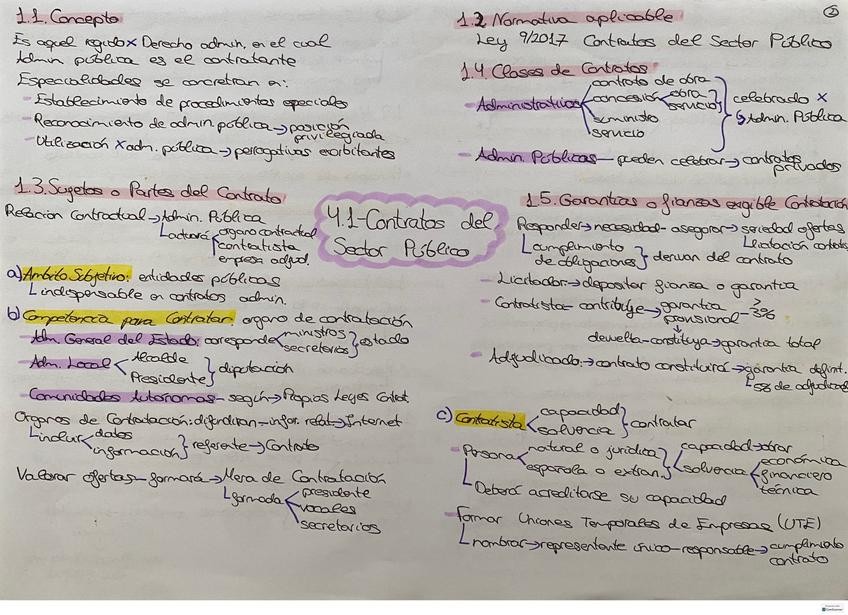 ②
1.1. Concepto
Es aquel regido x Derecho admin, en el cual
Admin pública es el contratante
Especialidades se concretran en:
- Establecimiento de procedimientos especiales
- Reconocimiento de admin. pública → posición
privilegiada
- Utilización x adm. pública → perrogativas exorbitantes
1.2 Normativa aplicable
Ley 9/2017 Contratos del Sector Público
1.4. Clases de Contratos
- Administrativos
contrato de obra
concesión
obra
servicio
suministro
servicio
celebrado x
↳ Admin. Pública
- Admin. Públicas — pueden celebrar → contratos
privados
1.3. Sujetos o Partes del Contrato
Relación Contractual → Admin. Pública
actuará
organo contractual
contratista
empresa adjud.
4.1-Contratos del
Sector Público
a) Ambito Subjetivo: entidades públicas
indispensable en contratos admin.
b) Competencia para Contratar: organo de contratación
- Adm. General del Estado: corresponde
ministros
secretarios
estado
- Adm. Local
Alcalde
Presidente
diputación
- Comunidades Autonomas - según → Propias Leyes Contrat.
Organos de Contratación: difundiran - infor. relat → Internet
incluir
datos
información
referente → Contrato
Valorar ofertas - formará → Mesa de Contratación
formada
presidente
vocales
secretarios
1.5. Garantias o fianzas exigible Contratación
Responder → necesidad - asegurar → seriedad ofertas
Licitación contrato
cumplimiento
de obligaciones
derivan del contrato
- Licitador → depositar fianza o garantia
- Contratista - contribuye → garantia
provisional - > 3%
devuelta - constituya → garantia total
- Adjudicado. → contrato constituirá → garantia definit.
5% de adjudicad
c) Contratista
capacidad
solvencia
contratar
- Persona
natural o juridica
española o extran.
capacidad → obrar
solvencia
económica
financiero
técnica
Deberá acreditarse su capacidad
- Formar Uniones Temporales de Empresas (UTE)
nombrar → representante único - responsable → cumplimiento
contrato
CamScanner